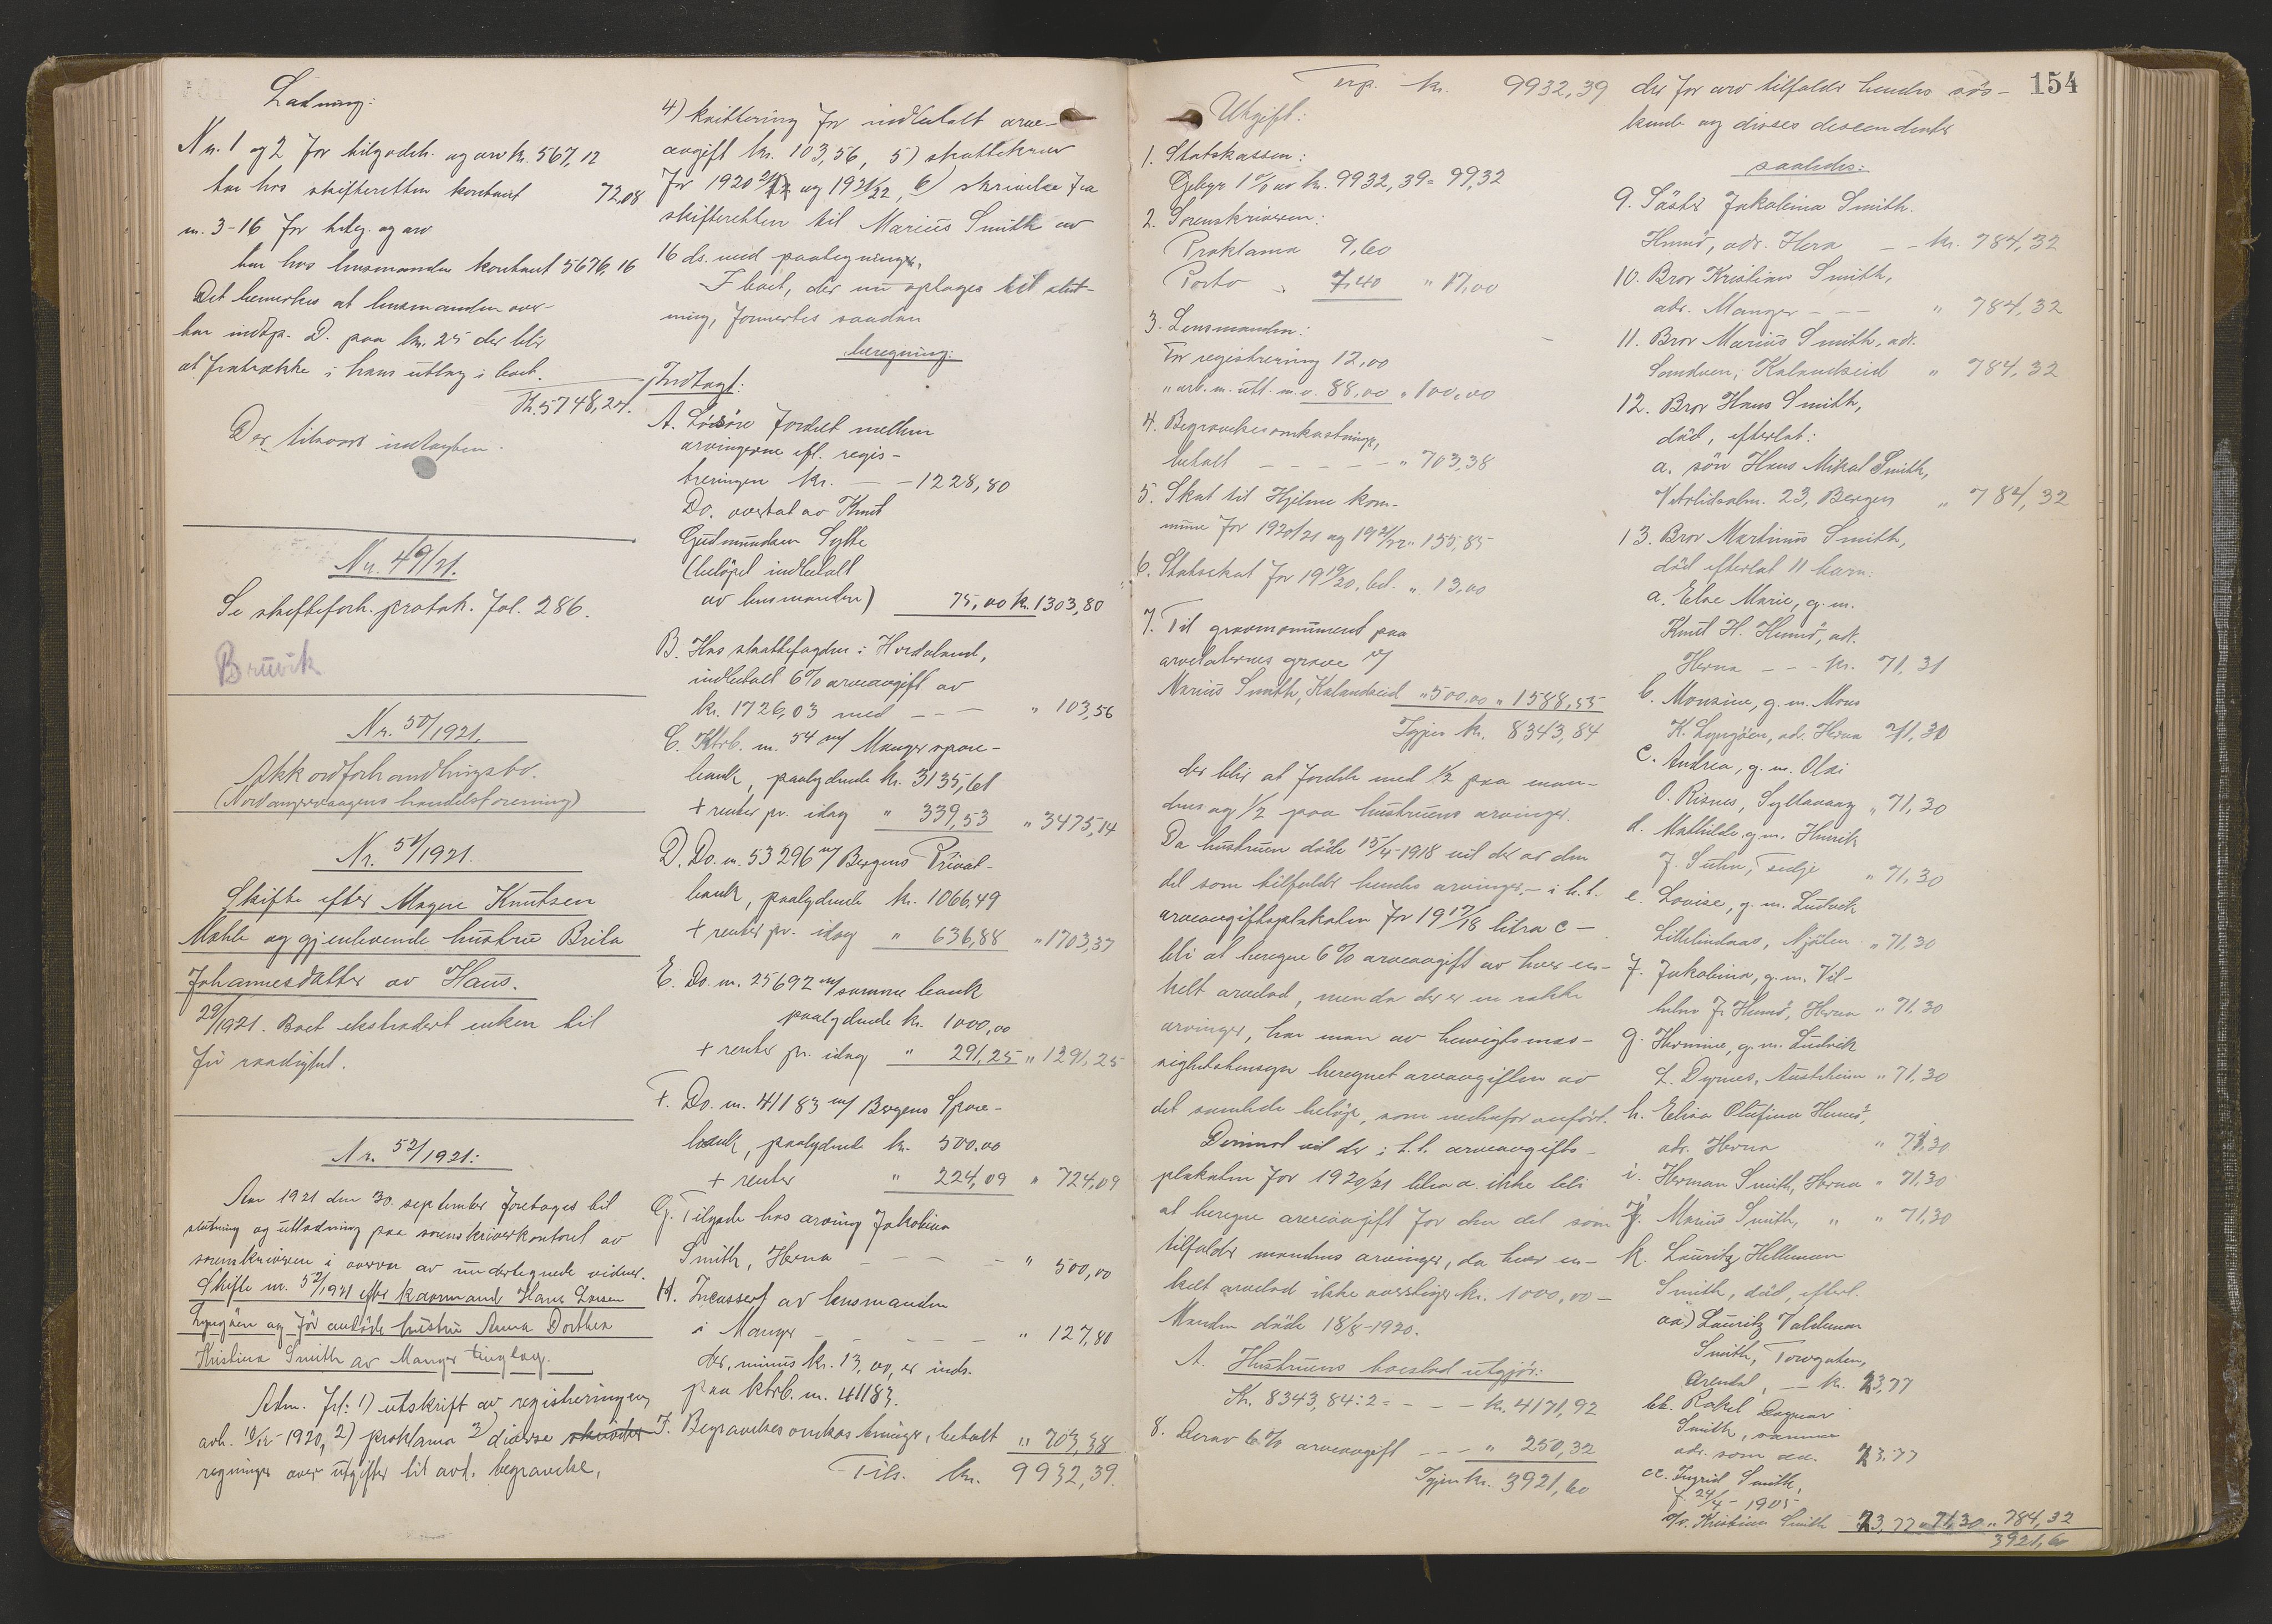 Ladning:
Nr. 1 og 2 for tilgodeh. og arv kr. 567,12
har hos skifteretten kontant 72,08
nr. 3-16 for tilg. og arv
har hos lensmanden kontant 5676,16
Det bemerkes at lensmanden over-
har indtp. D. paa kr. 25 der blir
at fratrække i hans utlæg i boet.
Kr. 5748,24.
Der tilsvares indtægten.
Nr. 49/21.
Se skifteforh. protok. fol. 286.
Bruvik
Nr. 50/1921.
Akkordforhandlingsbo.
(Nordangervaagens handelsforening)
Nr. 51/1921.
Skifte efter Mogne Knutsen
Mæhle og gjenlevende hustru Brita
Johannesdatter av Haus.
29/1921. Boet ekstradert enken til
fri raadighet.
Nr. 52/1921:
Aar 1921 den 30. september foretages til
slutning og utlodning paa sorenskriverkontoret av
sorenskriveren i overvær av undertegnede vidner.
Skifte nr. 52/1921 efter kaarmand Hans Larsen
Lyngöen og før avdöde hustru Anna Dorthea
Kristina Smith av Manger tinglag.
Adm. frl: 1) utskrift av registreringen,
avh. 10/12-1920, 2) proklama 3) diverse
regninger over utgifter til avd. begravelse,
4) kvittering for indbetalt arve-
avgift kr. 103,56, 5) skattekrav
for 1920/21 og 1921/22, 6) skrivelse fra
skifteretten til Marius Smith av
16 ds. med paategninger.
I boet, der nu optages til slut-
ning, formertes saadan
beregning:
Indtægt:
A. Løsöre fordelt mellem
arvingerne efl. regis-
treringen kr. - - 1228,80
Do. overtat av Knut
Gudmundsen Sylte
(belöpet indbetalt
av lensmanden) 75,00 kr. 1303,80
B. Hos skattefogden i Hordaland,
indbetalt 6% arveavgift av
kr. 1726,03 med - - - " 103,56
C. Ktrb. nr. 54 m/ Manger spare-
bank, paalydende kr. 3135,61
+ renter pr. idag " 339,53 " 3475,14
D. Do. nr. 53296 m/ Bergens Privat-
bank, paalydende kr. 1066,49
+ renter pr. idag " 636,88 " 1703,37
E. Do. nr. 25692 m/ samme bank
paalydende kr. 1000,00
+ renter pr. idag " 291,25 " 1291,25
F. Do. nr. 41183 m/ Bergens Spare-
bank, paalydende kr. 500,00
+ renter " 224,09 " 724,09
G. Tilgode hos arving Jakobina
Smith, Herna - - - " 500,00
H. Incassert av lensmanden
i Manger - - - - - " 127,80
der, minus kr. 13,00, er inds.
paa ktrb. nr. 41183.
I. Begravelsesomkostninger, betalt " 703,38
Tils. kr. 9932,39.
154
Trp. kr. 9932,39
Utgift:
1. Statskassen:
Gebyr 1% av kr. 9932,39 = 99,32
2. Sorenskriveren:
Proklama 9,60
Porto " 7,40 " 17,00
3. Lensmanden:
For registrering 12,00
" arb. m. utl. m.v. 88,00 " 100,00
4. Begravelsesomkostninger,
betalt - - - - - " 703,38
5. Skat til Hjelme kom-
mune for 1920/21 og 1921/22 " 155,85
6. Statsskat for 1919/20, bet. " 13,00
7. Til gravmonument paa
arveladernes grave v/
Marius Smith, Kalandseid " 500,00 " 1588,55
Igjen kr. 8343,84
der blir at fordele med 1/2 paa man-
dens og 1/2 paa hustruens arvinger.
Da hustruen döde 15/4-1918 vil der av den
del som tilfalder hendes arvinger, - i h.t.
arveavgiftsplakaten for 1917/18 litra c -
bli at beregne 6% arveavgift av hver en-
kelt arvelod, men da der er en række
arvinger, har man av hensigtsmæs-
sighetshensyn beregnet arveavgiften av
det samlede belöp, som nedenfor anfört.
Derimot vil der i h.t. arveavgifts-
plakaten for 1920/21 litra a. ikke bli
at beregne arveavgift for den del som
tilfalder mandens arvinger, da hver en-
kelt arvelod ikke overstiger kr. 1000,00 -
Manden döde 18/8-1920.
A. Hustruens boeslod utgjör:
Kr. 8343,84:2 = - - - kr. 4171,92
8. Derav 6% arveavgift - - - " 250,32
Igjen kr. 3921,60
der for arv tilfalder hendes sös-
kende og disses descendenter
saaledes:
9. Söster Jakobina Smith.
Hunnö, adr. Hern - - kr. 784,32
10. Bror Kristian Smith,
adr. Manger - - - " 784,32
11. Bror Marius Smith, adr.
Samdven, Kalandseid " 784,32
12. Bror Hans Smith,
död, efterlat:
a. sön Hans Mikal Smith,
Vetrlidsalm. 23, Bergen " 784,32
13. Bror Martinus Smith,
död efterlat 11 barn:
a. Else Marie, g. m.
Knut H. Hunnö, adr.
Herna - - - kr. 71,31
b. Monsine, g. m. Mons
K. Lyngöen, adr. Herna 71,30
c. Andrea, g. m. Olai
O. Risnes, Syltavaag " 71,30
d. Mathilde, g. m. Henrik
J. Sulen, Fedje " 71,30
e. Lovise, g. m. Ludvik
Lillelindaas, Njöten " 71,30
f. Jakobina, g. m. Vil-
helm J. Hunnö, Herna " 71,30
g. Hermine, g. m. Ludvik
L. Dyrnes, Austrheim " 71,30
h. Elisa Olufina Hunnö,
adr. Herna " 71,30
i. Herman Smith, Herna " 71,30
j. Marius Smith, " " 71,30
k. Lauritz Helleman
Smith, död, efterl.
aa) Lauritz Valdemar
Smith, Torvgaten,
Arendal, - - kr. 23,77
bb. Rakel Dagmar
Smith, samme
adr. som aa. 23,77
cc. Ingrid Smith,
f. 24/4-1905
v/v. Kristian Smith 23,77 " 71,30 " 784,32
3921,60